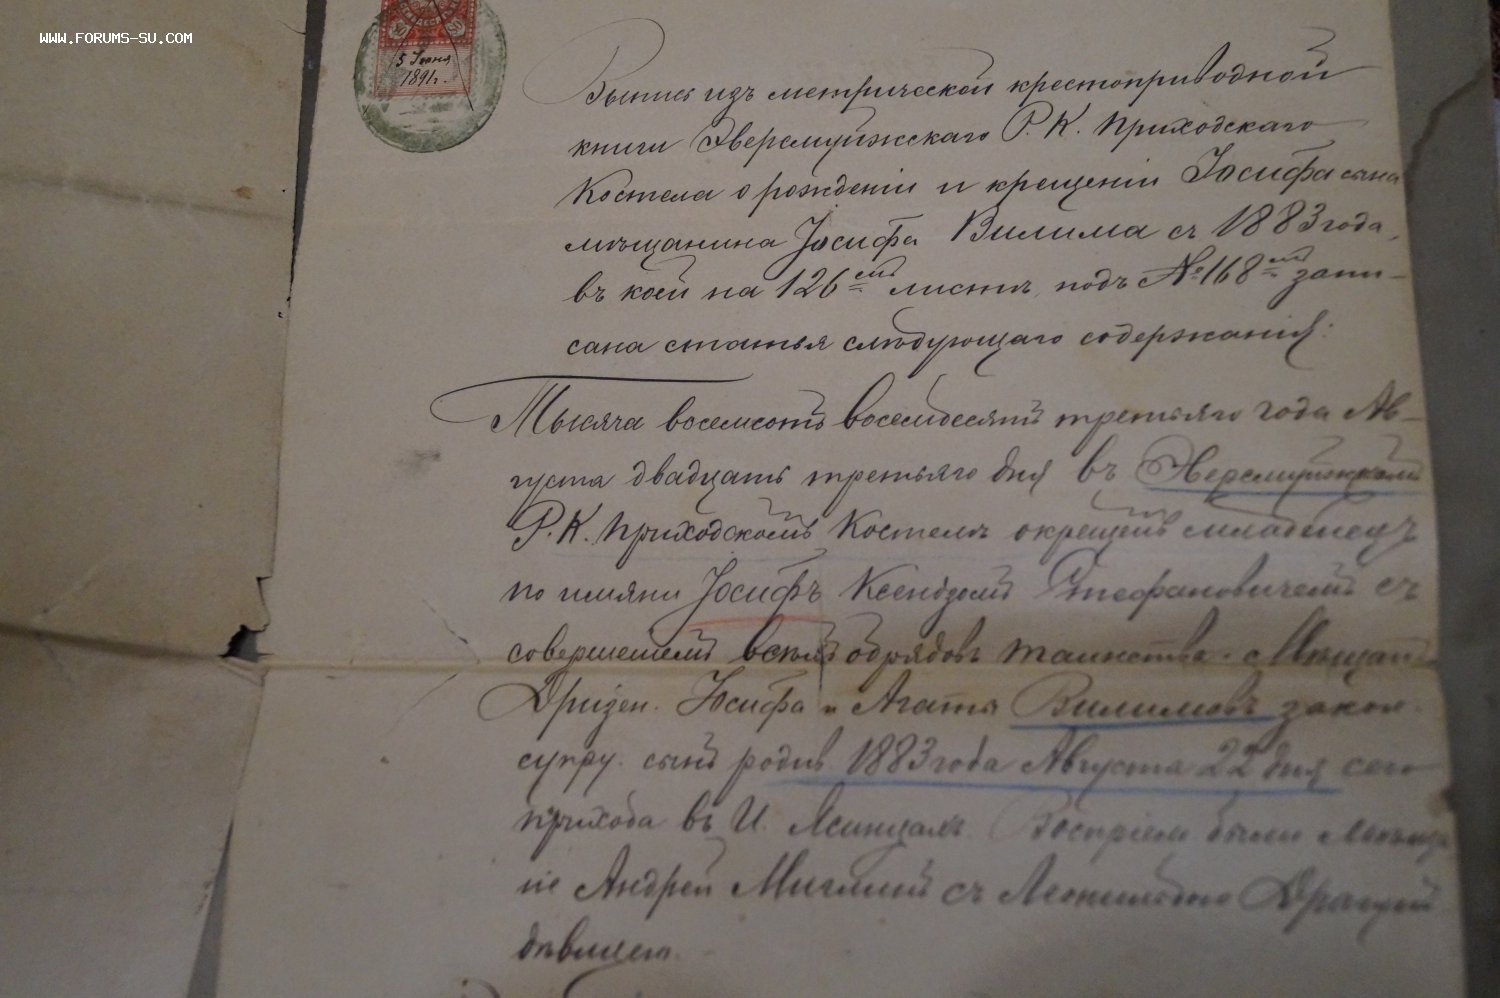 WWW.FORUMS-SU.COM
80 80
5 Іюня
1891г.
Выпись изъ метрической крестоприводной
книги Эверсмуйжскаго Р. К. Приходскаго
Костела о рожденіи и крещеніи Іосифа сына
мѣщанина Іосифа Вилима съ 1883 года,
въ коей на 126ᵐᵃ листѣ подъ № 168ᵐᵃ запи-
сана статья слѣдующаго содержанія:
Тысяча восемсотъ восемдесятъ третьяго года Ав-
густа двадцать третьяго дня въ Эверсмуйжскомъ
Р. К. Приходскомъ Костелѣ окрещенъ младенецъ
по имяни Іосифъ Ксендзомъ Стефановичемъ съ
совершеніемъ всѣхъ обрядовъ таинства. Мѣщан
Іосифа и Агаты Вилимовъ закон.
супру. сынъ родив. 1883 года Августа 22 дня сего
прихода въ И. Воспріем были
Андрей съ
дѣвицею.